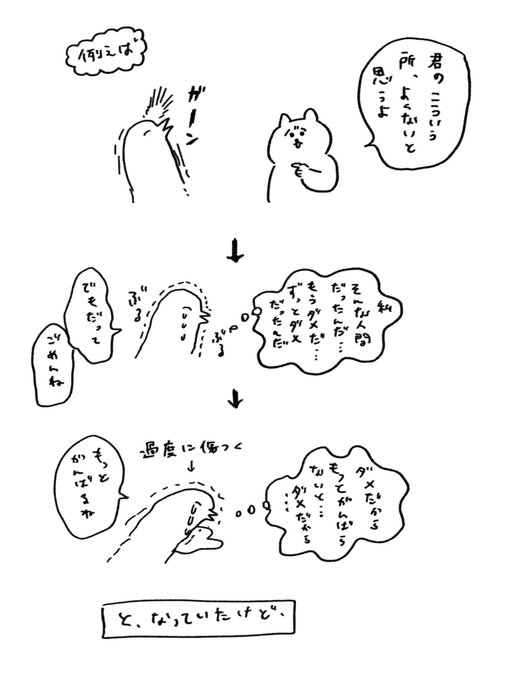 例えば
君のこういう
所、よくないと
思うよ
ガーン
私
そんな人間
だったんだ…
もうダメだ…
ずっとダメ
だったんだ
ぶる
ぶる
でもだって
ごめんね
過度に傷つく
↓
ダメだから
もってがんばら
ないと…
ダメだから
…
もっと
がんばるね
と、なっていたけど、